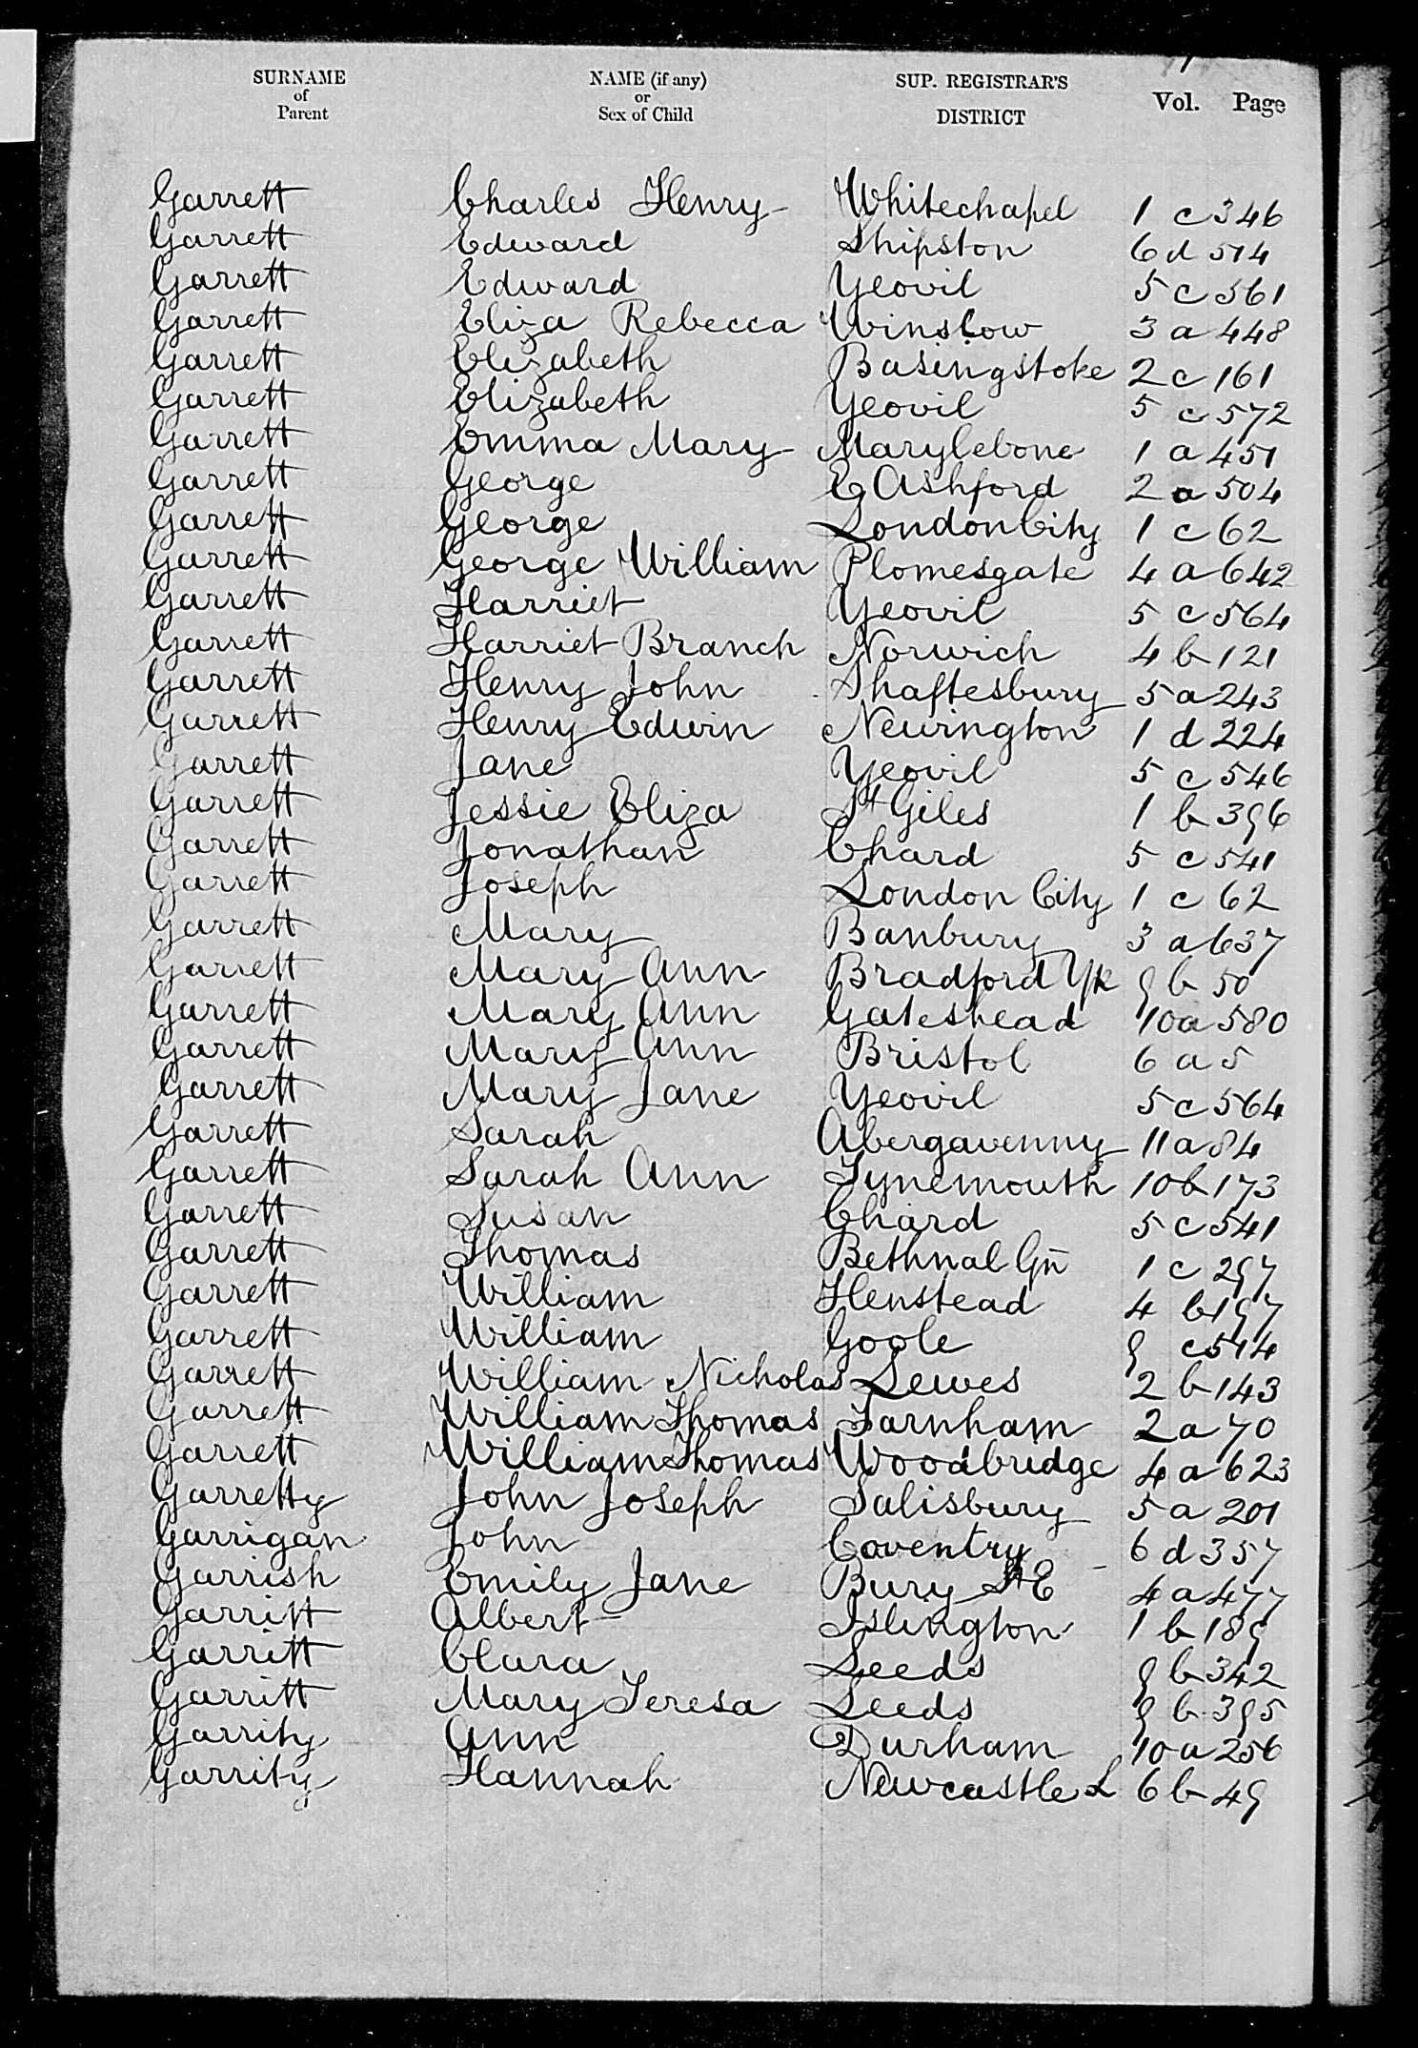 SURNAME of Parent NAME (if any) or Sex of Child SUP. REGISTRAR'S DISTRICT Vol. Page
Garrett Charles Henry Whitechapel 1 c 346
Garrett Edward Shipston 6 d 514
Garrett Edward Yeovil 5 c 561
Garrett Eliza Rebecca Winslow 3 a 448
Garrett Elizabeth Basingstoke 2 c 161
Garrett Elizabeth Yeovil 5 c 572
Garrett Emma Mary Marylebone 1 a 451
Garrett George E Ashford 2 a 504
Garrett George London City 1 c 62
Garrett George William Plomesgate 4 a 642
Garrett Harriet Yeovil 5 c 564
Garrett Harriet Branch Norwich 4 b 121
Garrett Henry John Shaftesbury 5 a 243
Garrett Henry Edwin Newington 1 d 224
Garrett Jane Yeovil 5 c 546
Garrett Jessie Eliza St Giles 1 b 396
Garrett Jonathan Chard 5 c 541
Garrett Joseph London City 1 c 62
Garrett Mary Banbury 3 a 637
Garrett Mary Ann Bradford Yk 9 b 50
Garrett Mary Ann Gateshead 10 a 580
Garrett Mary Ann Bristol 6 a 5
Garrett Mary Jane Yeovil 5 c 564
Garrett Sarah Abergavenny 11 a 84
Garrett Sarah Ann Tynemouth 10 b 173
Garrett Susan Chard 5 c 541
Garrett Thomas Bethnal Gn 1 c 297
Garrett William Henstead 4 b 197
Garrett William Goole 9 c 514
Garrett William Nicholas Lewes 2 b 143
Garrett William Thomas Farnham 2 a 70
Garrett William Thomas Woodbridge 4 a 623
Garretty John Joseph Salisbury 5 a 201
Garrigan John Coventry 6 d 357
Garrish Emily Jane Bury St E 4 a 477
Garritt Albert Islington 1 b 189
Garritt Clara Leeds 9 b 342
Garritt Mary Teresa Leeds 9 b 395
Garrity Ann Durham 10 a 256
Garrity Hannah Newcastle L 6 b 49